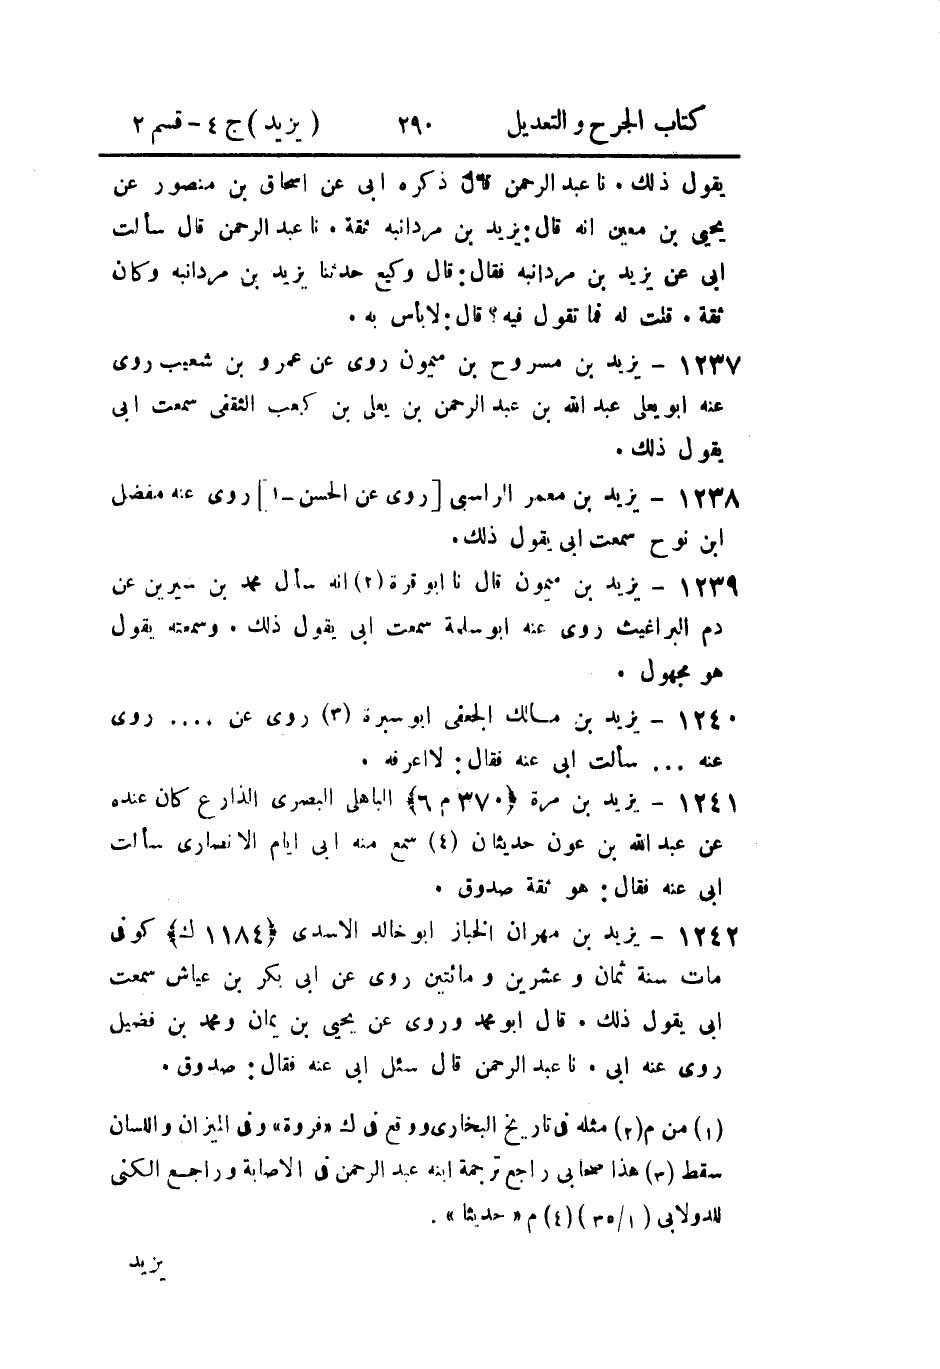 كتاب الجرح والتعديل ٢٩٠ (يزيد) ج ٤ - قسم ٢
يقول ذلك. نا عبد الرحمن قال ذكره ابى عن اسحاق بن منصور عن
يحيى بن معين انه قال: يزيد بن مردانبه ثقة. نا عبد الرحمن قال سألت
ابى عن يزيد بن مردانبه فقال: قال وكيع حدثنا يزيد بن مردانبه وكان
ثقة. قلت له فما تقول فيه؟ قال: لا بأس به.
١٢٣٧ - يزيد بن مسروح بن ميمون روى عن عمرو بن شعيب روى
عنه ابو يعلى عبد الله بن عبد الرحمن بن يعلى بن كعب الثقفى سمعت ابى
يقول ذلك.
١٢٣٨ - يزيد بن معمر الراسبى [روى عن الحسن - ١] روى عنه مفضل
ابن نوح سمعت ابى يقول ذلك.
١٢٣٩ - يزيد بن ميمون قال نا ابو قرة (٢) انه سأل محمد بن سيرين عن
دم البراغيث روى عنه ابو سلمة سمعت ابى يقول ذلك. وسمعته يقول
هو مجهول.
١٢٤٠ - يزيد بن مالك الجعفى ابو سبرة (٣) روى عن .... روى
عنه ... سألت ابى عنه فقال: لا اعرفه.
١٢٤١ - يزيد بن مرة {٣٧٠ م ٦} الباهلى البصرى الذارع كان عنده
عن عبد الله بن عون حديثان (٤) سمع منه ابى ايام الانصارى سألت
ابى عنه فقال: هو ثقة صدوق.
١٢٤٢ - يزيد بن مهران الخباز ابو خالد الاسدى {١١٨٤ ك} كوفى
مات سنة ثمان وعشرين ومائتين روى عن ابى بكر بن عياش سمعت
ابى يقول ذلك. قال ابو محمد وروى عن يحيى بن يمان ومحمد بن فضيل
روى عنه ابى. نا عبد الرحمن قال سئل ابى عنه فقال: صدوق.
(١) من م (٢) مثله فى تاريخ البخارى ووقع فى ك «فروة» وفى الميزان واللسان
سقط (٣) هذا صحابى راجع ترجمة ابنه عبد الرحمن فى الاصابة وراجع الكنى
للدولابى (١/ ٣٥) (٤) م «حديثا».
يزيد